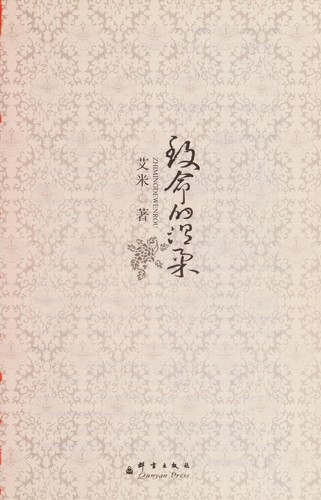 致命的温柔
ZHIMINGDEWENROU
艾米 著
群言出版社
Qunyan Press